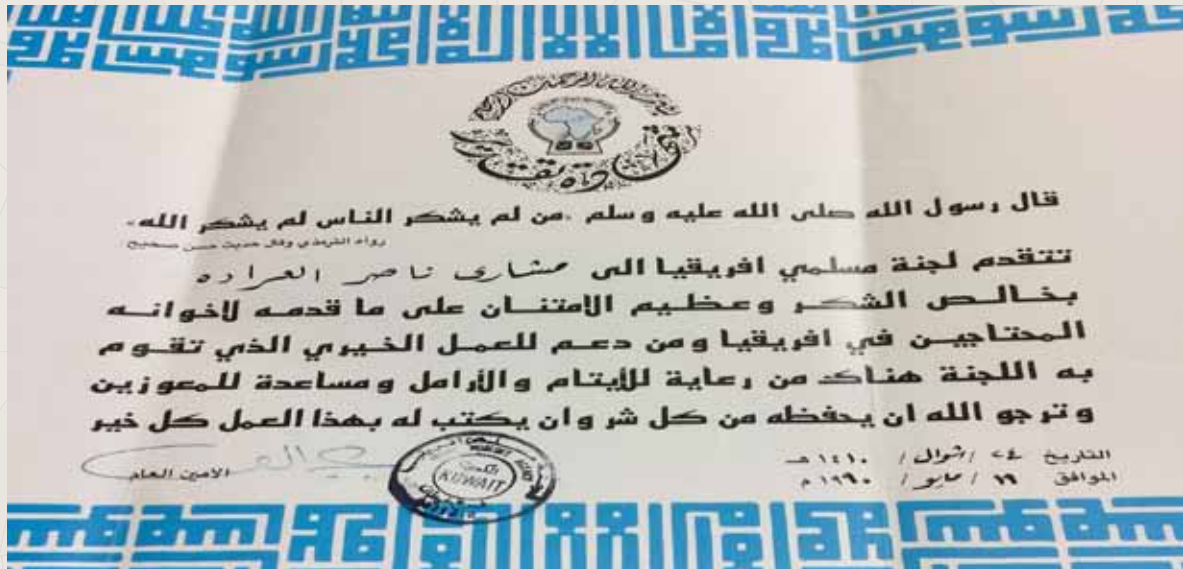 لا اله الا الله محمد رسول الله
بسم الله الرحمن الرحيم
شهادة تقدير
قال رسول الله صلى الله عليه وسلم «من لم يشكر الناس لم يشكر الله»
رواه الترمذي وقال حديث حسن صحيح
تتقدم لجنة مسلمي افريقيا الى مشاري ناصر العراده
بخالص الشكر وعظيم الامتنان على ما قدمه لاخوانه
المحتاجين في افريقيا ومن دعم للعمل الخيري الذي تقوم
به اللجنة هناك من رعاية للأيتام والأرامل ومساعدة للمعوزين
وترجو الله ان يحفظه من كل شر وان يكتب له بهذا العمل كل خير
التاريخ ٢٤ / شوال / ١٤١٠ هـ
الموافق ١٩ / مايو / ١٩٩٠ م
KUWAIT
الكويت
الامين العام